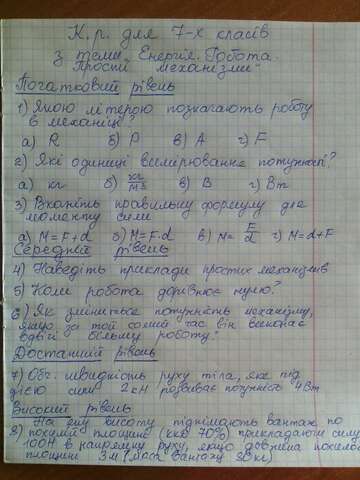 К.р. для 7-х класів
з теми „Енергія. Робота.
Прості механізми"
Початковий рівень
1) Якою літерою позначають роботу
в механіці?
а) R б) P в) A г) F
2) Які одиниці вимірювання потужності?
а) кг б) кг/м3 в) В г) Вт
3) Вкажіть правильну формулу для
моменту сили
а) M=F+d б) M=F·d в) M=F/d г) M=d+F
Середній рівень
4) Наведіть приклади простих механізмів
5) Коли робота дорівнює нулю?
6) Як зміниться потужність механізму,
якщо за той самий час він виконає
вдвічі більшу роботу?
Достатній рівень
7) Обч. швидкість руху тіла, яке під
дією сили 2кН розвиває потужність 4Вт
Високий рівень
На яку висоту піднімають вантаж по
8) похилій площині (ккд 70%) прикладаючи силу
100Н в напрямку руху, якщо довжина похилої
площини 3м (маса вантажу 30 кг)